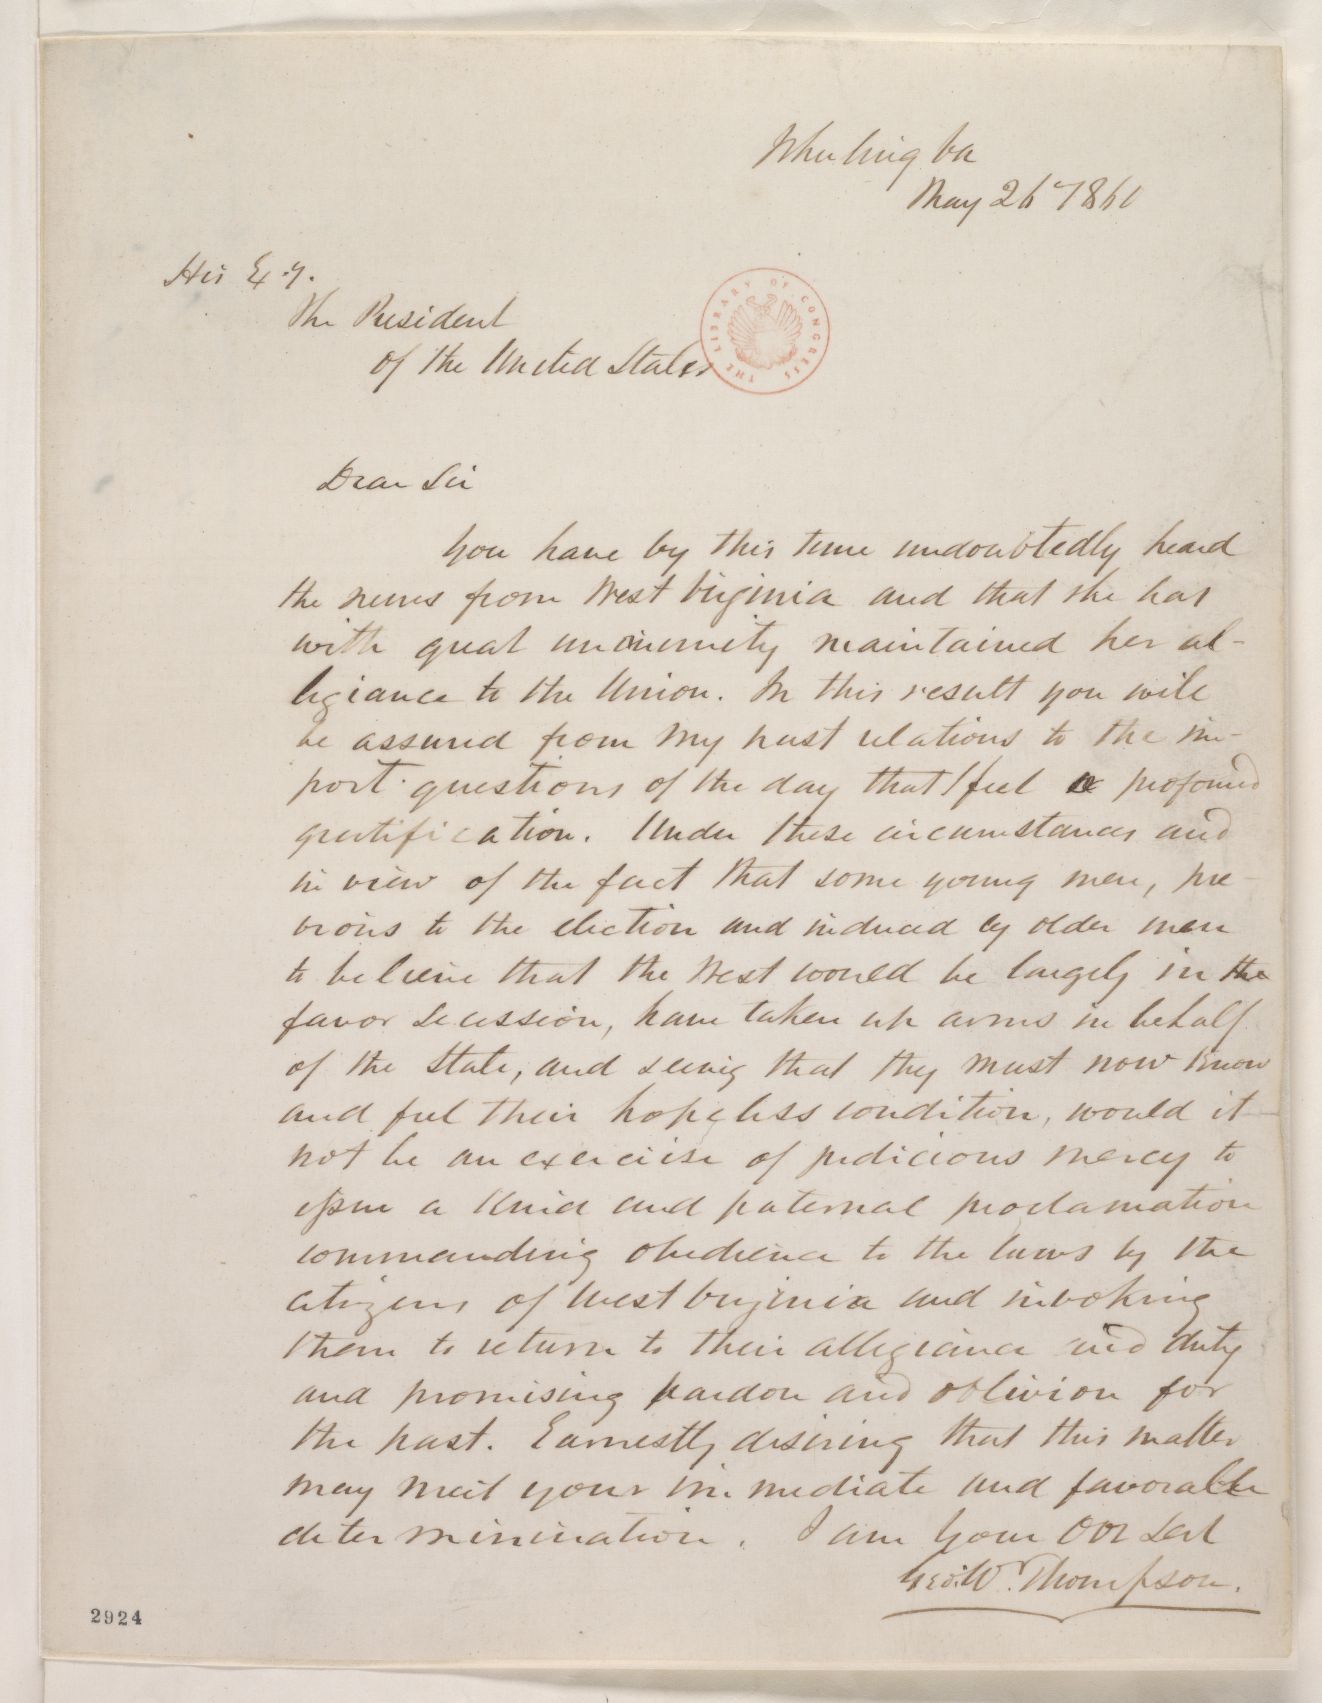 Wheeling Va
May 26 1861
His Exy.
The President
of the United States
THE LIBRARY OF CONGRESS
Dear Sir
You have by this time undoubtedly heard
the news from West Virginia and that she has
with great unanimity maintained her al-
legiance to the Union. In this result you will
be assured from my past relations to the im-
port. questions of the day that I feel a profound
gratification. Under these circumstances and
in view of the fact that some young men, pre-
vious to the election and induced by older men
to believe that the West would be largely in the
favor Secession, have taken up arms in behalf
of the State, and seeing that they must now know
and feel their hopeless condition, would it
not be an exercise of judicious mercy to
issue a kind and paternal proclamation
commanding obedience to the laws by the
citizens of West Virginia and invoking
them to return to their allegiance and duty
and promising pardon and oblivion for
the past. Earnestly desiring that this matter
may meet your immediate and favorable
determinination. I am Your Obt Sevt
Geo: W. Thompson.
2924